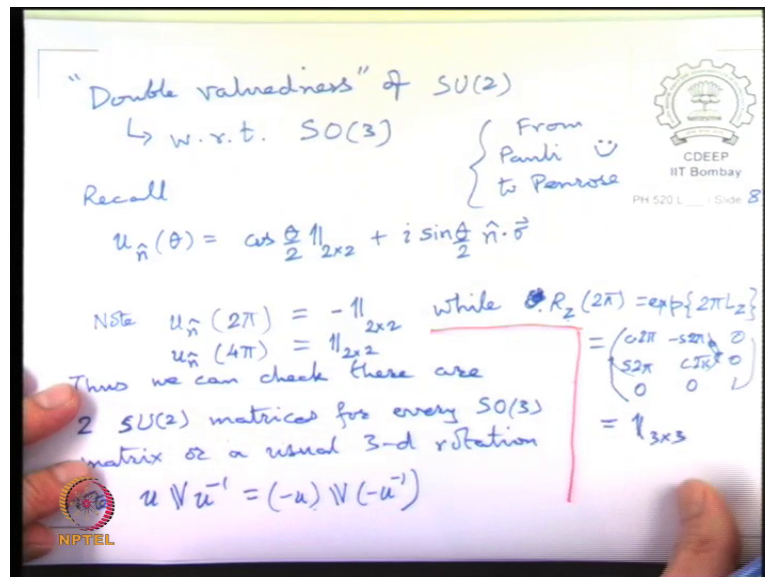 "Double valuedness" of SU(2)
↳ w.r.t. SO(3)
{ From
Pauli ☺
to Penrose
CDEEP
IIT Bombay
PH 520 L / Slide 8
Recall
u_n̂(θ) = cos θ/2 𝟙_2x2 + i sin θ/2 n̂·σ⃗
Note u_n̂(2π) = -𝟙_2x2 while R_z(2π) = exp{2πL_z}
u_n̂(4π) = 𝟙_2x2
= (c2π -s2π 0
s2π c2π 0
0 0 1)
= 𝟙_3x3
Thus we can check there are
2 SU(2) matrices for every SO(3)
matrix or a usual 3-d rotation
u V u⁻¹ = (-u) V (-u⁻¹)
NPTEL